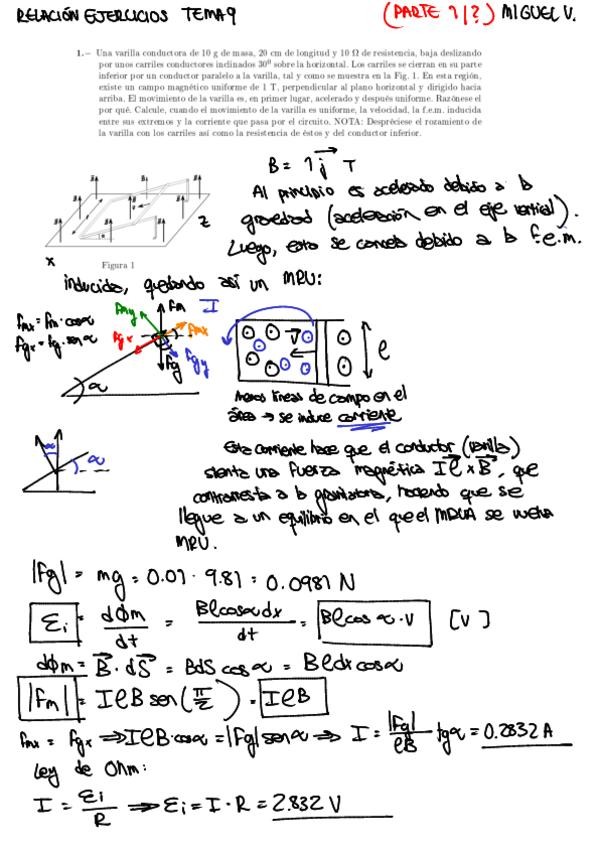 RELACIÓN EJERCICIOS TEMA 9 (PARTE 1/?) MIGUEL V.
1.– Una varilla conductora de 10 g de masa, 20 cm de longitud y 10 Ω de resistencia, baja deslizando
por unos carriles conductores inclinados 30⁰ sobre la horizontal. Los carriles se cierran en su parte
inferior por un conductor paralelo a la varilla, tal y como se muestra en la Fig. 1. En esta región,
existe un campo magnético uniforme de 1 T, perpendicular al plano horizontal y dirigido hacia
arriba. El movimiento de la varilla es, en primer lugar, acelerado y después uniforme. Razónese el
por qué. Calcule, cuando el movimiento de la varilla es uniforme, la velocidad, la f.e.m. inducida
entre sus extremos y la corriente que pasa por el circuito. NOTA: Despréciese el rozamiento de
la varilla con los carriles así como la resistencia de éstos y del conductor inferior.
B = 1 j T
Al principio es acelerado debido a la
gravedad (aceleración en el eje vertical).
Luego, esta se cancela debido a la f.e.m.
z
x
Figura 1
inducida, quedando así un MRU:
Fmx = Fm · cosα
Fgx = Fg · senα
Fmy
Fm
Fmx
Fgx
Fgy
Fg
α
I
v
l
menos líneas de campo en el
área → se induce corriente
α
Esta corriente hace que el conductor (varilla)
sienta una fuerza magnética Il x B, que
contrarresta a la gravitatoria, haciendo que se
llegue a un equilibrio en el que el MRUA se vuelva
MRU.
|Fg| = mg = 0.01 · 9.81 = 0.0981 N
Ɛi = dϕm/dt = Blcosαdx/dt = Blcos α · v [V]
dϕm = B · dS = BdS cosα = Bldx cosα
|Fm| = IlB sen(π/2) = IlB
Fmx = Fgx ⇒ IlB·cosα = |Fg| senα ⇒ I = |Fg|/lB tgα = 0.2832 A
Ley de Ohm:
I = Ɛi/R ⇒ Ɛi = I · R = 2.832 V